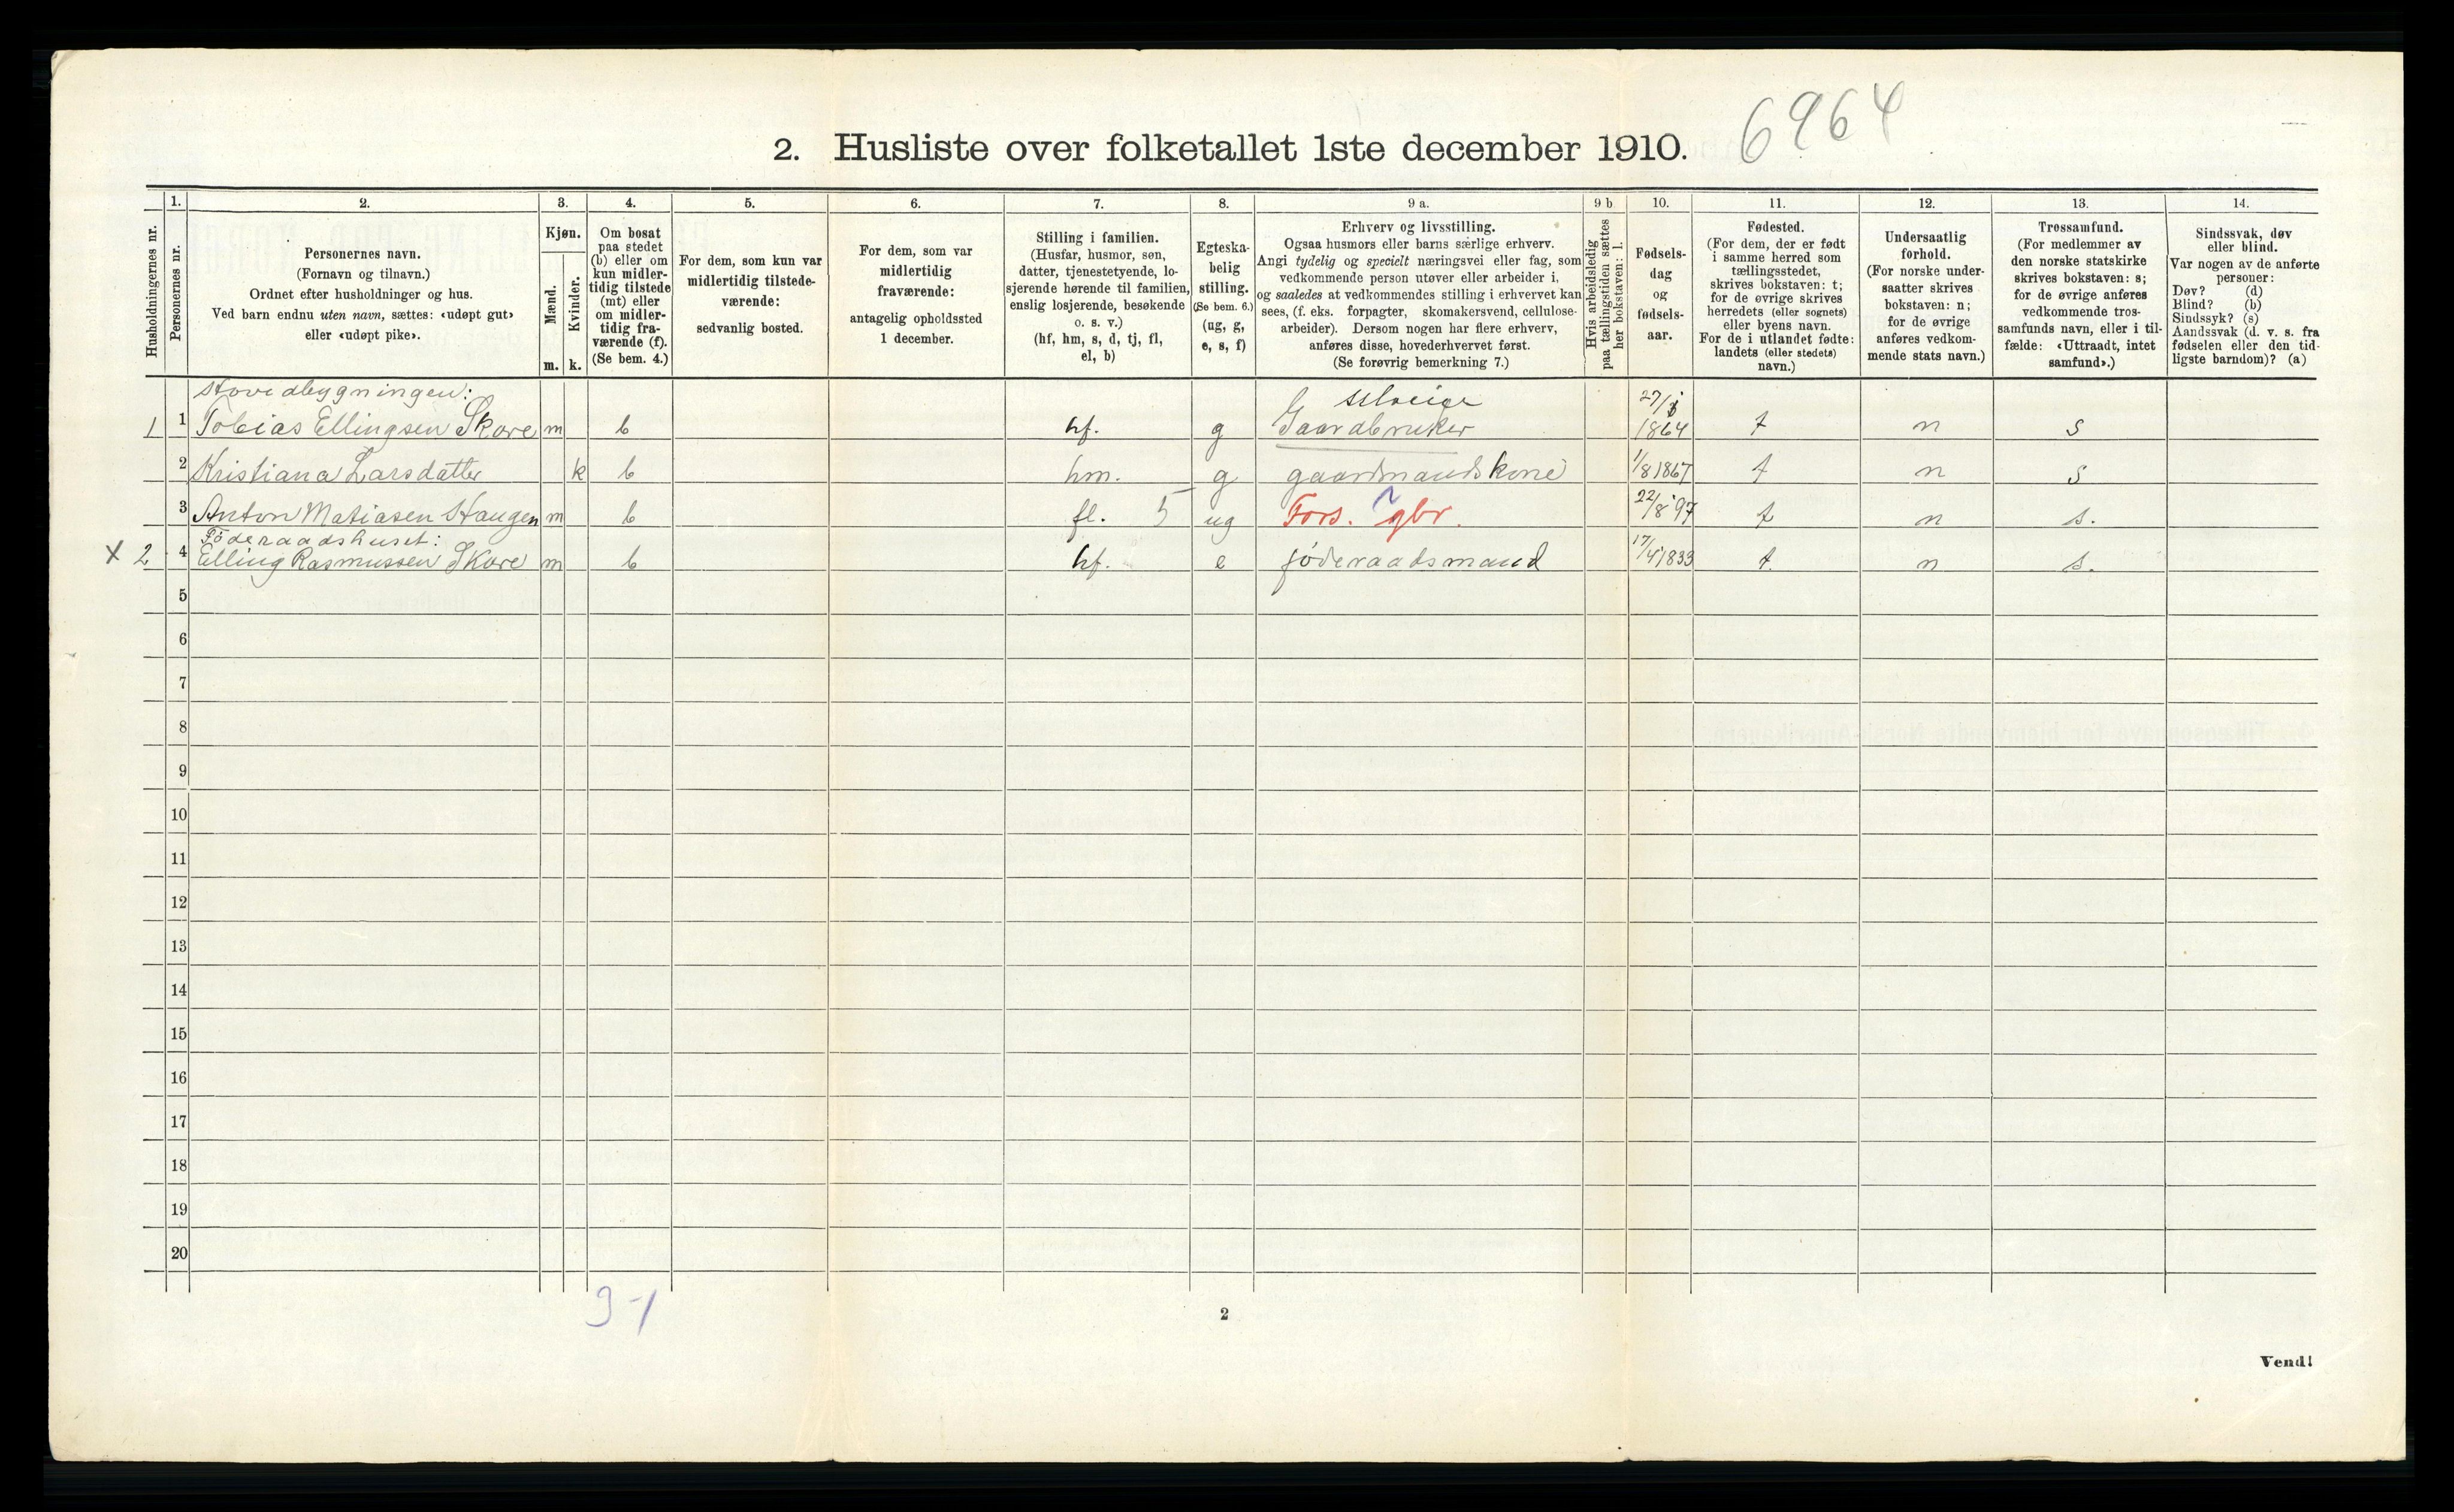 6964
2. Husliste over folketallet 1ste december 1910.
Husholdningernes nr.
1.
Personernes nr.
2.
Personernes navn.
(Fornavn og tilnavn.)
Ordnet efter husholdninger og hus.
Ved barn endnu uten navn, sættes: «udøpt gut»
eller «udøpt pike».
3.
Kjøn.
Mænd.
m.
Kvinder.
k.
4.
Om bosat
paa stedet
(b) eller om
kun midler-
tidig tilstede
(mt) eller
om midler-
tidig fra-
værende (f).
(Se bem. 4.)
5.
For dem, som kun var
midlertidig tilstede-
værende:
sedvanlig bosted.
6.
For dem, som var
midlertidig
fraværende:
antagelig opholdssted
1 december.
7.
Stilling i familien.
(Husfar, husmor, søn,
datter, tjenestetyende, lo-
sjerende hørende til familien,
enslig losjerende, besøkende
o. s. v.)
(hf, hm, s, d, tj, fl,
el, b)
8.
Egteska-
belig
stilling.
(Se bem. 6.)
(ug, g,
e, s, f)
9 a.
Erhverv og livsstilling.
Ogsaa husmors eller barns særlige erhverv.
Angi tydelig og specielt næringsvei eller fag, som
vedkommende person utøver eller arbeider i,
og saaledes at vedkommendes stilling i erhvervet kan
sees, (f. eks. forpagter, skomakersvend, cellulose-
arbeider). Dersom nogen har flere erhverv,
anføres disse, hovederhvervet først.
(Se forøvrig bemerkning 7.)
9 b
Hvis arbeidsledig
paa tællingstiden sættes
her bokstaven: l.
10.
Fødsels-
dag
og
fødsels-
aar.
11.
Fødested.
(For dem, der er født
i samme herred som
tællingsstedet,
skrives bokstaven: t;
for de øvrige skrives
herredets (eller sognets)
eller byens navn.
For de i utlandet fødte:
landets (eller stedets)
navn.)
12.
Undersaatlig
forhold.
(For norske under-
saatter skrives
bokstaven: n;
for de øvrige
anføres vedkom-
mende stats navn.)
13.
Trossamfund.
(For medlemmer av
den norske statskirke
skrives bokstaven: s;
for de øvrige anføres
vedkommende tros-
samfunds navn, eller i til-
fælde: «Uttraadt, intet
samfund».)
14.
Sindssvak, døv
eller blind.
Var nogen av de anførte
personer:
Døv? (d)
Blind? (b)
Sindssyk? (s)
Aandssvak (d. v. s. fra
fødselen eller den tid-
ligste barndom)? (a)
Hovedbygningen:
1 1 Tobias Ellingsen Skore m b hf. g Selveige Gaardbruker 27/ 1864 t n s
2 Kristiana Larsdatter k b hm. g gaardmandskone 1/8 1867 t n s
3 Anton Matiasen Haugen m b fl. 5 ug Fors. gbr. 22/8 97 t n s.
Föderaadshuset:
X 2 4 Elling Rasmussen Skore m b hf. e föderaadsmand 17/4 1833 t. n s.
5
6
7
8
9
10
11
12
13
14
15
16
17
18
19
20
3-1
2
Vend!